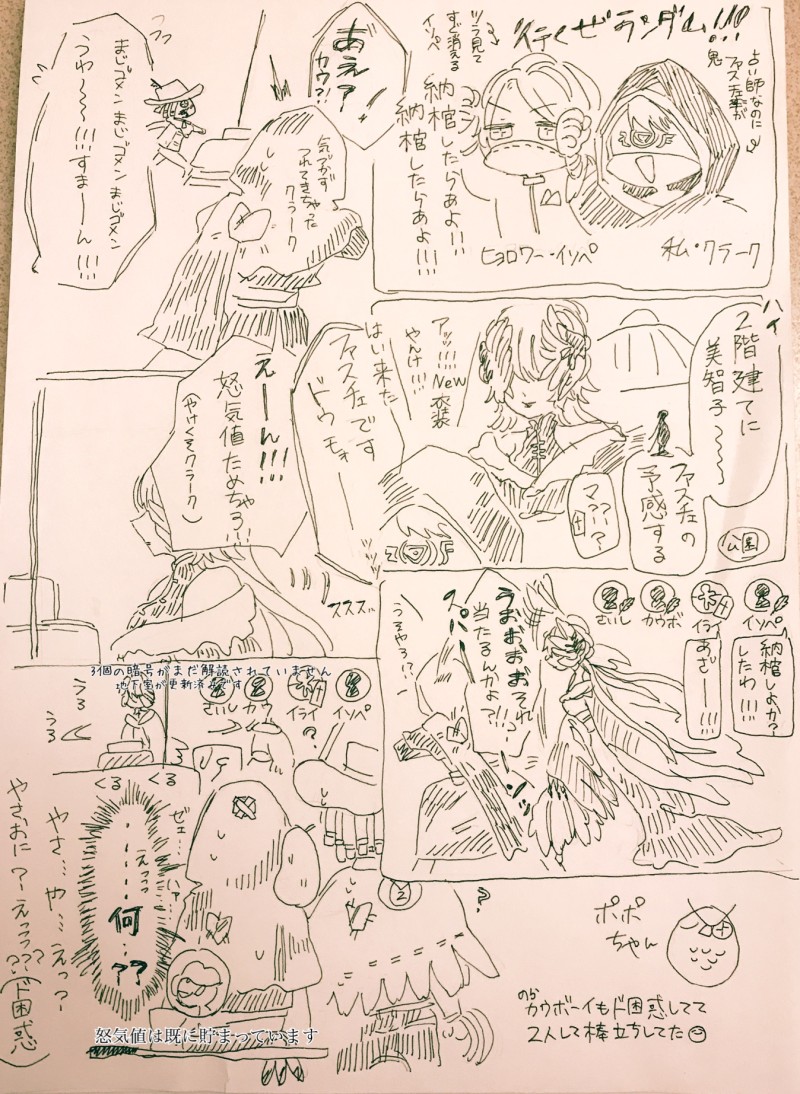 行くぜランダム!!!
占い師なのに
ファスチェ率が
鬼
ツラ見て
すぐ消える
イソペ
納棺したらぁよ!!
納棺したらぁよ!!!
ヒョロワー・イソペ
私・クラーク
あえ?
カウ?!
気づかず
つれてきちゃった
クラーク
まじゴメンまじゴメンまじゴメン
うわ〜〜!!!すまーーん!!!
ハイ
2階建てに
美智子〜〜〜
ファスチェの
予感する
公園
マ??
アッ!!!New
衣装
やんけ!!!
はい来た
ファスチェです
ドウモォーーー
えーん!!!
怒気値ためちゃろ!!!
(やけくそクラーク)
ズズズ..
イソペ
イライ
カウボ
さいし
納棺しよか?
したわ!!!
あざーー!!!
うおぉぉぉそれ
当たるんかよ?!!
スパ
うそやろ!?
3個の暗号がまだ解読されていません
地下室が更新済みです
さいし
カウ
イライ
イソペ
うろ
うろ
くる
くる
?
ゼェ...
ハァ...
えっっっ
・・・・・何・・??
やさ…や…えっ?ー
やさおに?ーえっっ??(ド困惑)
?
怒気値は既に貯まっています
ポポ
ちゃん
のち
カウボーイもド困惑してて
2人して棒立ちしてた